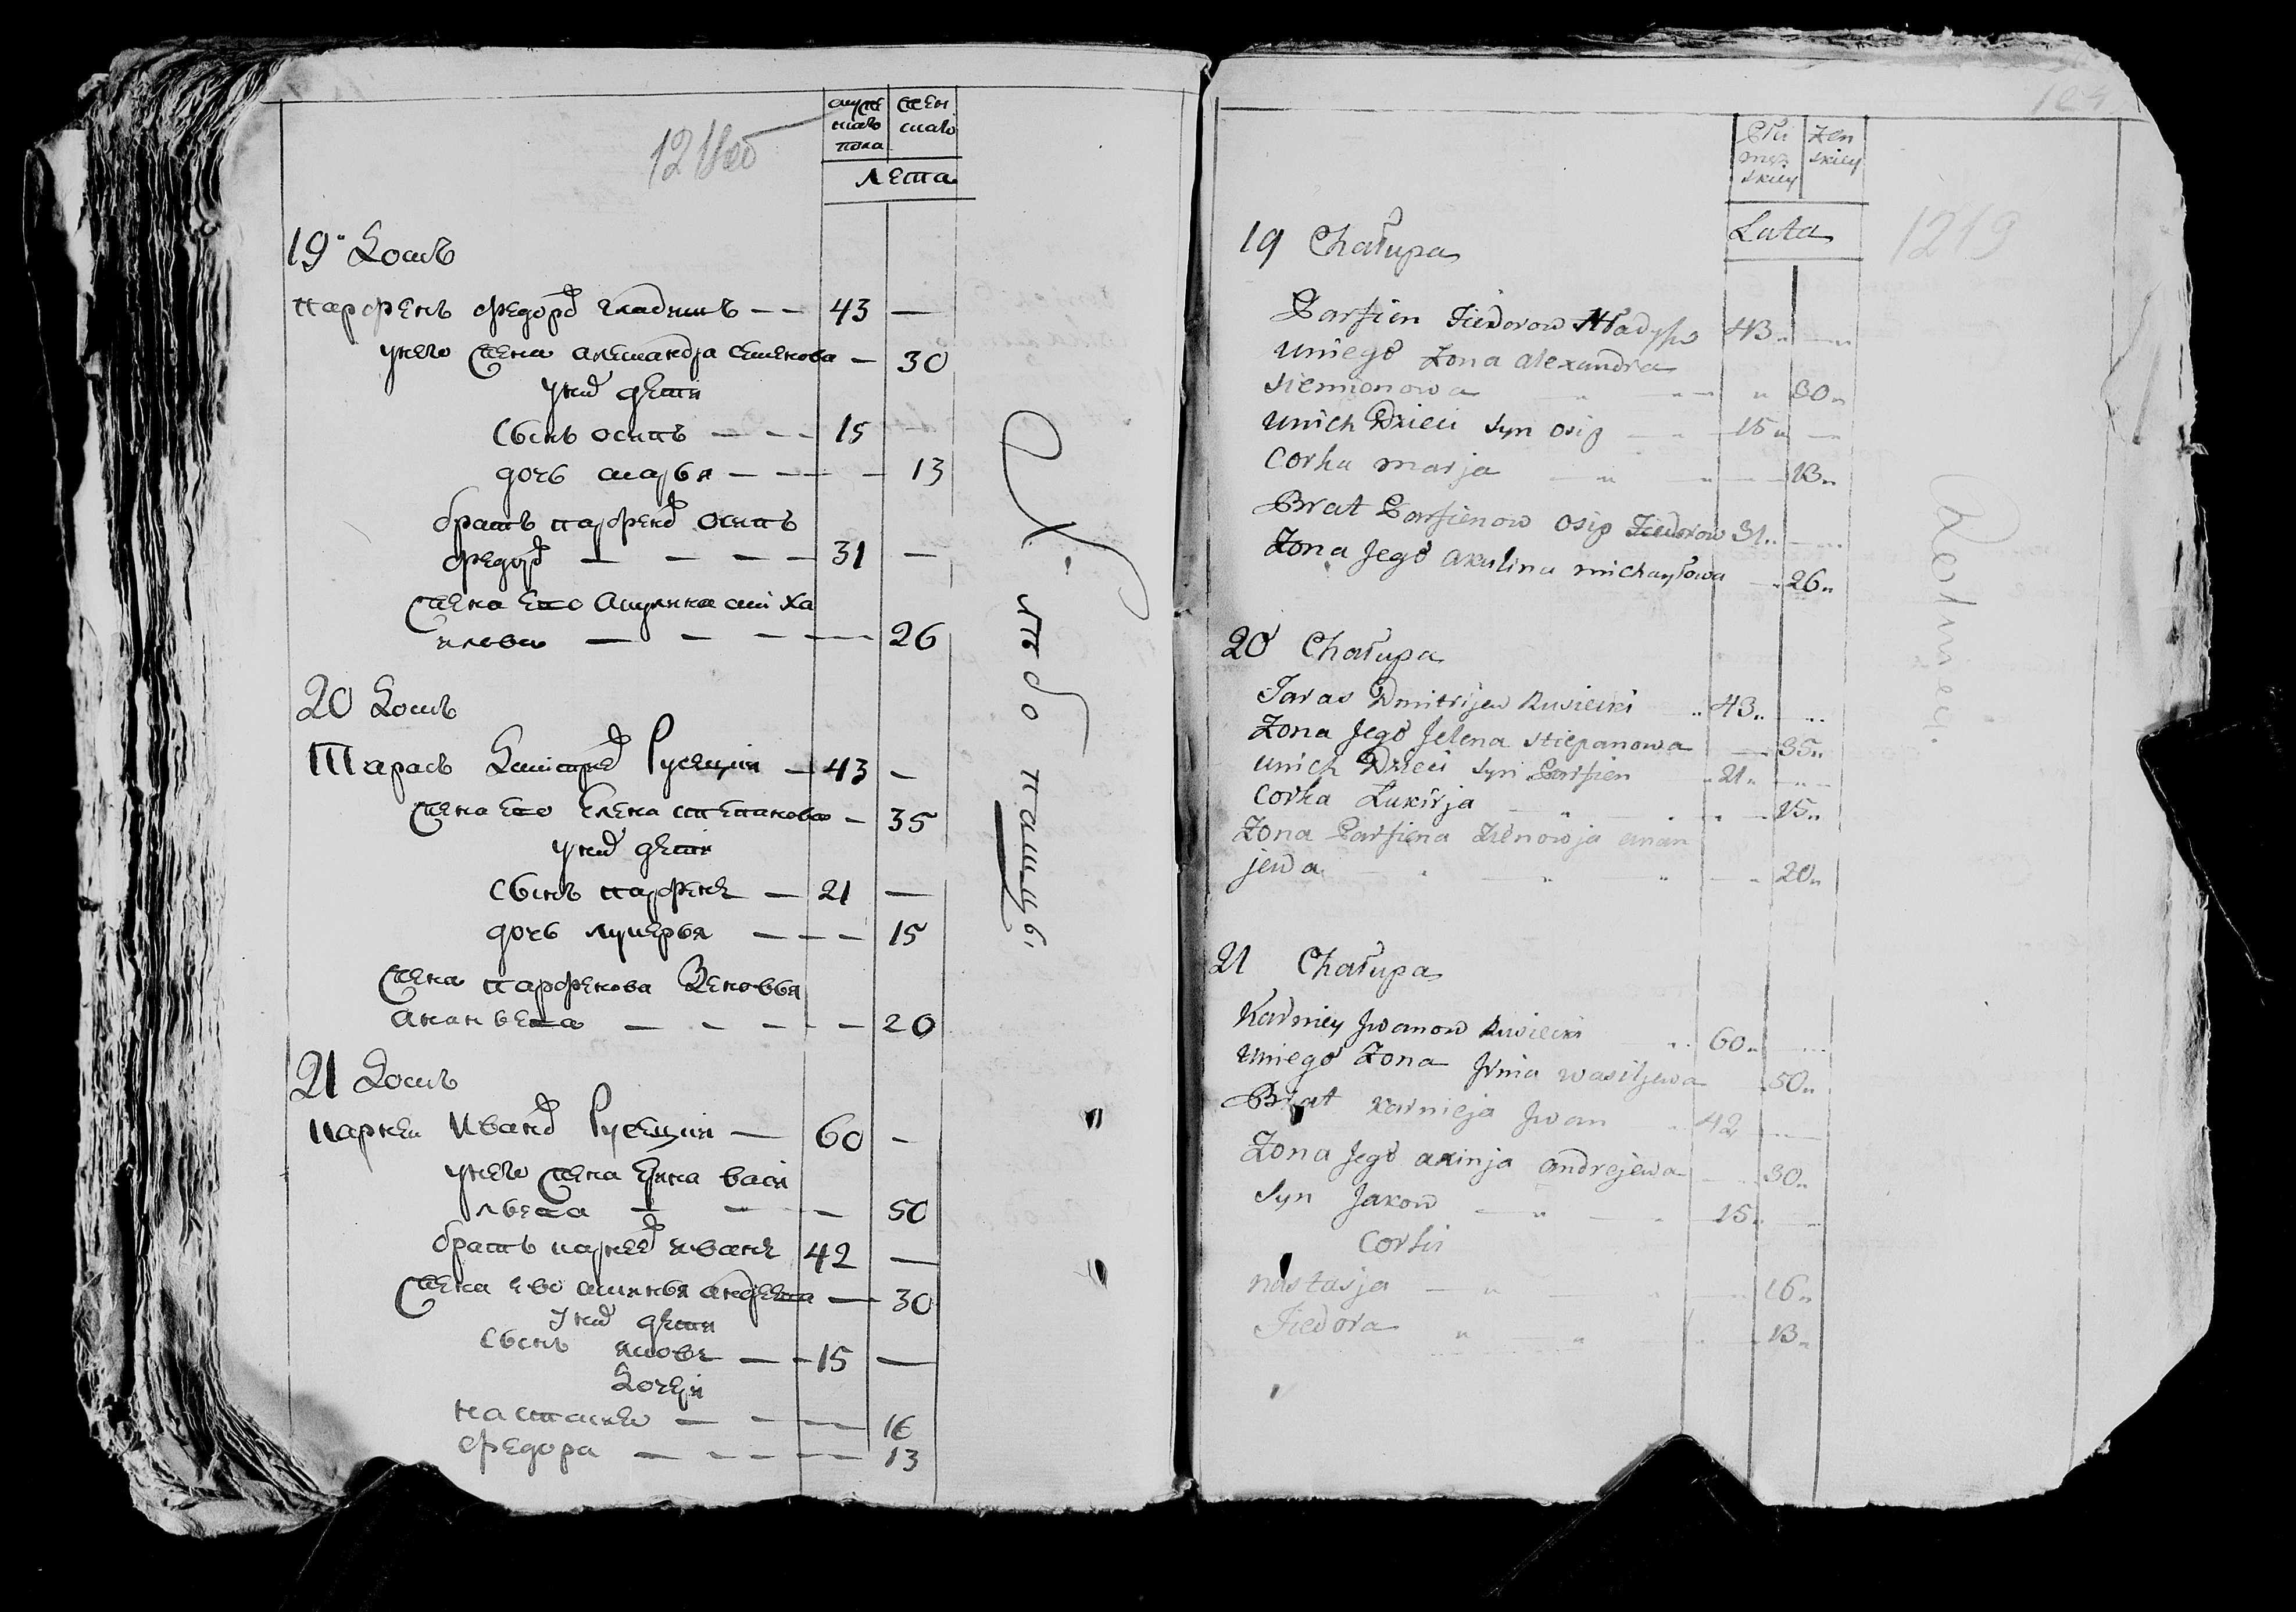 мужс жен
каго скаго
пола
лета
19 Домъ
парфенъ федоровъ гладкихъ — — 43 —
унего жена александра семенова — 30
уних дети
сынъ осипъ — — — 15 —
дочь марья — — — — 13
братъ парфенов осипъ
федоров — — — — 31 —
жена его акулина миха
илова — — — — 26
20 Домъ
Тарасъ Дмитриев Русецкии — 43 —
жена его Елена степанова — 35
уних дети
сынъ парфенъ — 21 —
дочь лукерья — — — 15
жена парфенова Зеновья
ананьева — — — — — 20
21 Домъ
карнеи Иванов Русецкии — 60 —
унего жена Ірина васи
льева — — — 50
братъ карнеев иванъ 42 —
жена ево акинья андреева — 30
уних дети
сынъ яковъ — — 15 —
Дочери
настасья — — — 16
федора — — — — 13
Płci Żen
męz skiey
skiey
Lata
1219
19 Chałupa
Parfien Fiedorow Hładysz 43 „ — „
uniego Zona alexandra
siemionowa „ — „ „ 30 „
unich Dzieci syn osip — „ — 15 „ —
Corka marja — „ „ — 13 „
Brat Parfienow osip Fiedorow 31 „ — „
Zona Jego akulina michayłowa — „ 26 „
20 Chałupa
Taras Dmitrijew Rusiecki „ 43 „ „
Zona Jego Jelena stiepanowa — 35 „
unich Dzieci syn Parfien „ 21 „ — „
Corka Lukirja — „ „ — 15 „
Zona Parfiena Zienowja anan
jewa — „ — „ „ — „ 20 „
21 Chałupa
Karniey Jwanow Rusiecki „ 60 „ „
uniego Zona Jrina wasiljewa „ 50 „
Brat Karnieja Jwan „ 42 — „
Zona Jego axinja andrejewa — „ 30 „
syn Jakow — „ — „ 15 „ — „
Corki
nastasja — „ — „ — 16 „
Fiedora „ — „ — „ 13 „